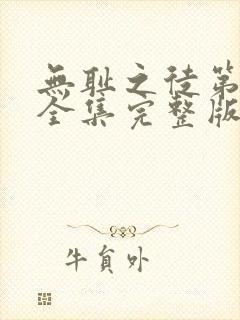 無耻之徒第
全集完整版
牛貟外